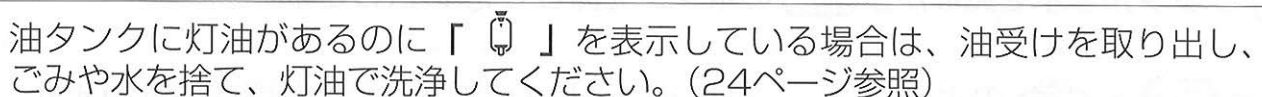 油タンクに灯油があるのに「 」を表示している場合は、油受けを取り出し、
ごみや水を捨て、灯油で洗浄してください。(24ページ参照)